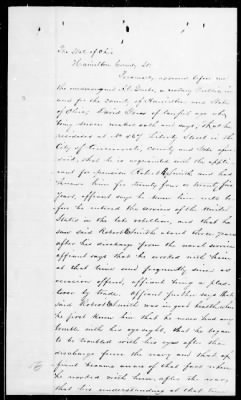 The State of Ohio
Hamilton County, SS.
Personally appeared before me
the undersigned a notary Public in
and for the county of Hamilton and State
of Ohio, David of lawful age who
being sworn and says, that he
resides at No 527 Liberty Street in the
City of Cincinnati, County and State afore
said, that he is acquainted with the appli
cant for pension Robert Smith and has
known him for twenty four or twenty five
years, affiant says he knew him well be
fore he entered the service of the United
States in the late rebellion, and that he
saw said Robert Smith about three years
after his discharge from the naval service
affiant says that he worked with him
at that time and frequently since as
occasion offered, affiant being a
by trade. affiant further says that
said Robert Smith was in good health when
he first knew him that he never had any
trouble with his eye sight, that he began
to be troubled with his eyes after the
discharge from the navy and that af
fiant became aware of that fact when
he worked with him, after the war,
that his understanding at that time